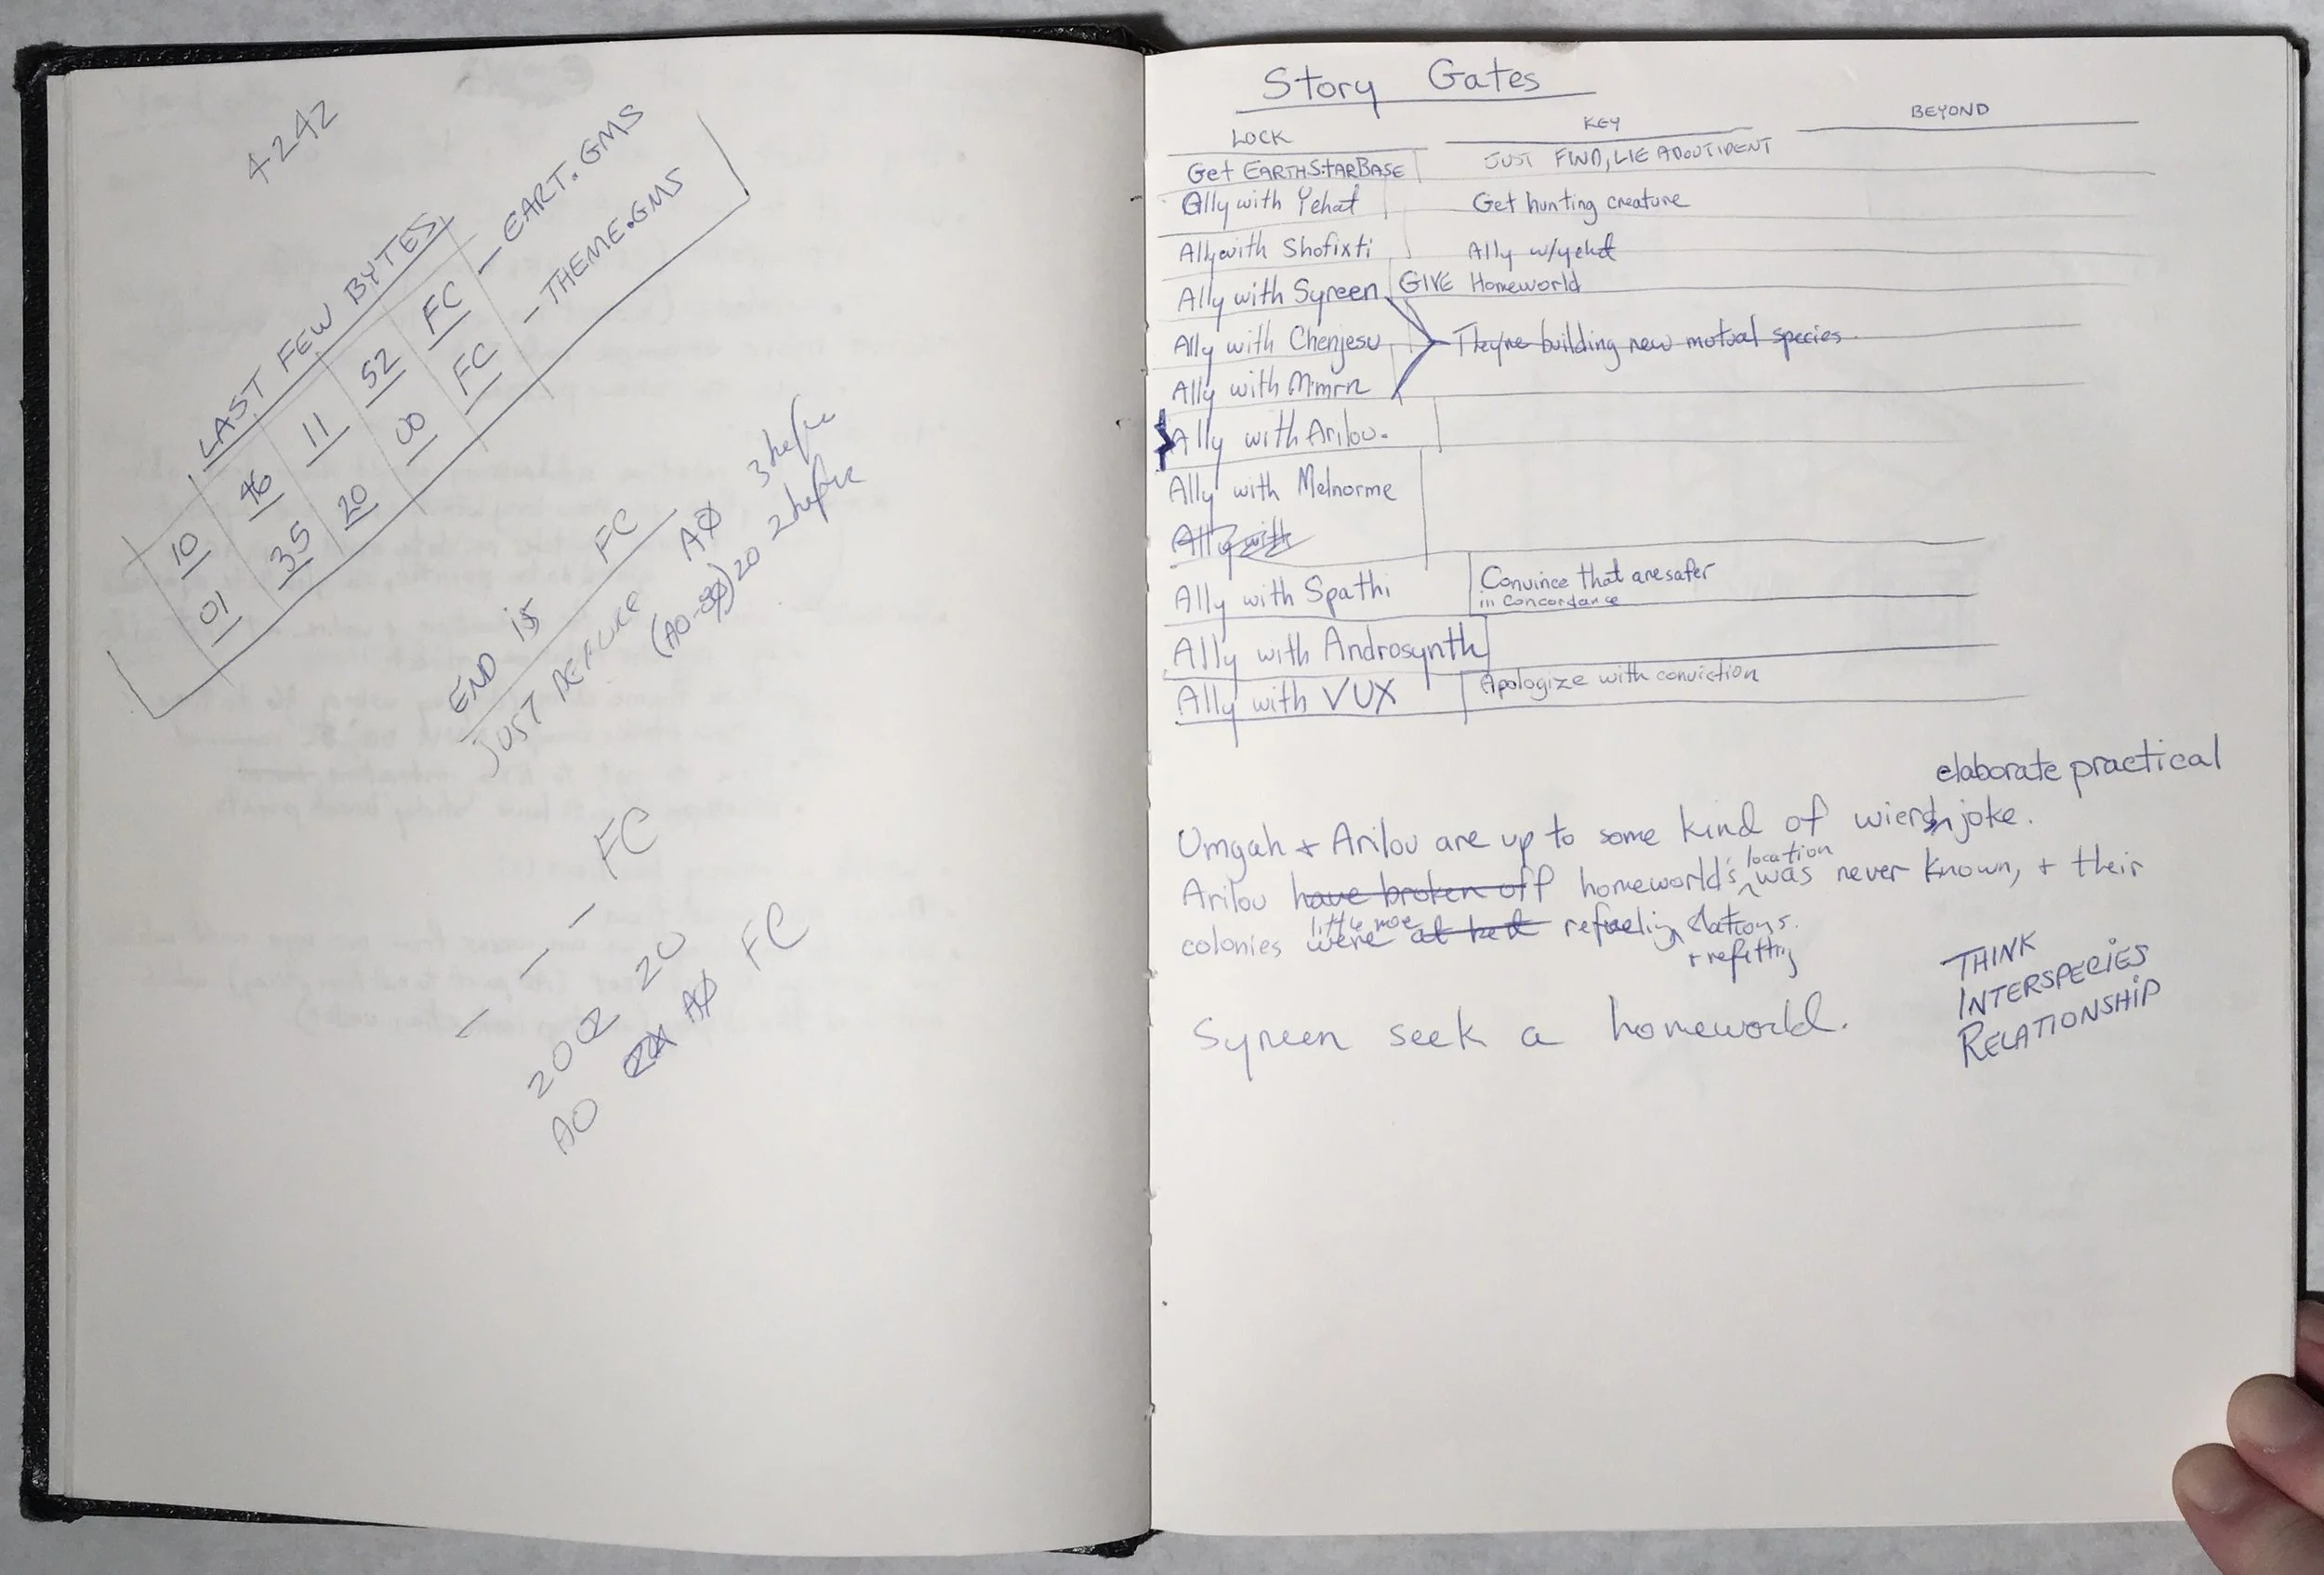 4242
LAST FEW BYTES
10 46 11 52 FC — EART.GMS
01 35 20 00 FC — THEME.GMS
END is FC
JUST BEFORE A0 3 before
20 2 before
— — — FC
20 20
A0 A0 FC
Story Gates
LOCK KEY BEYOND
Get EARTH STARBASE JUST FIND, LIE ABOUT IDENT
Ally with Yehat Get hunting creature
Ally with Shofixti Ally w/yehat
Ally with Syreen GIVE Homeworld
Ally with Chenjesu They're building new mutual species
Ally with Mmrn
Ally with Arilou.
Ally with Melnorme
Ally with
Ally with Spathi Convince that are safer
in Concordance
Ally with Androsynth
Ally with VUX Apologize with conviction
elaborate practical
Umgah + Arilou are up to some kind of joke.
location
Arilou have broken off homeworld's was never known, + their
little more
colonies were at best refueling stations.
+ refitting
Syreen seek a homeworld.
THINK
INTERSPECIES
RELATIONSHIP